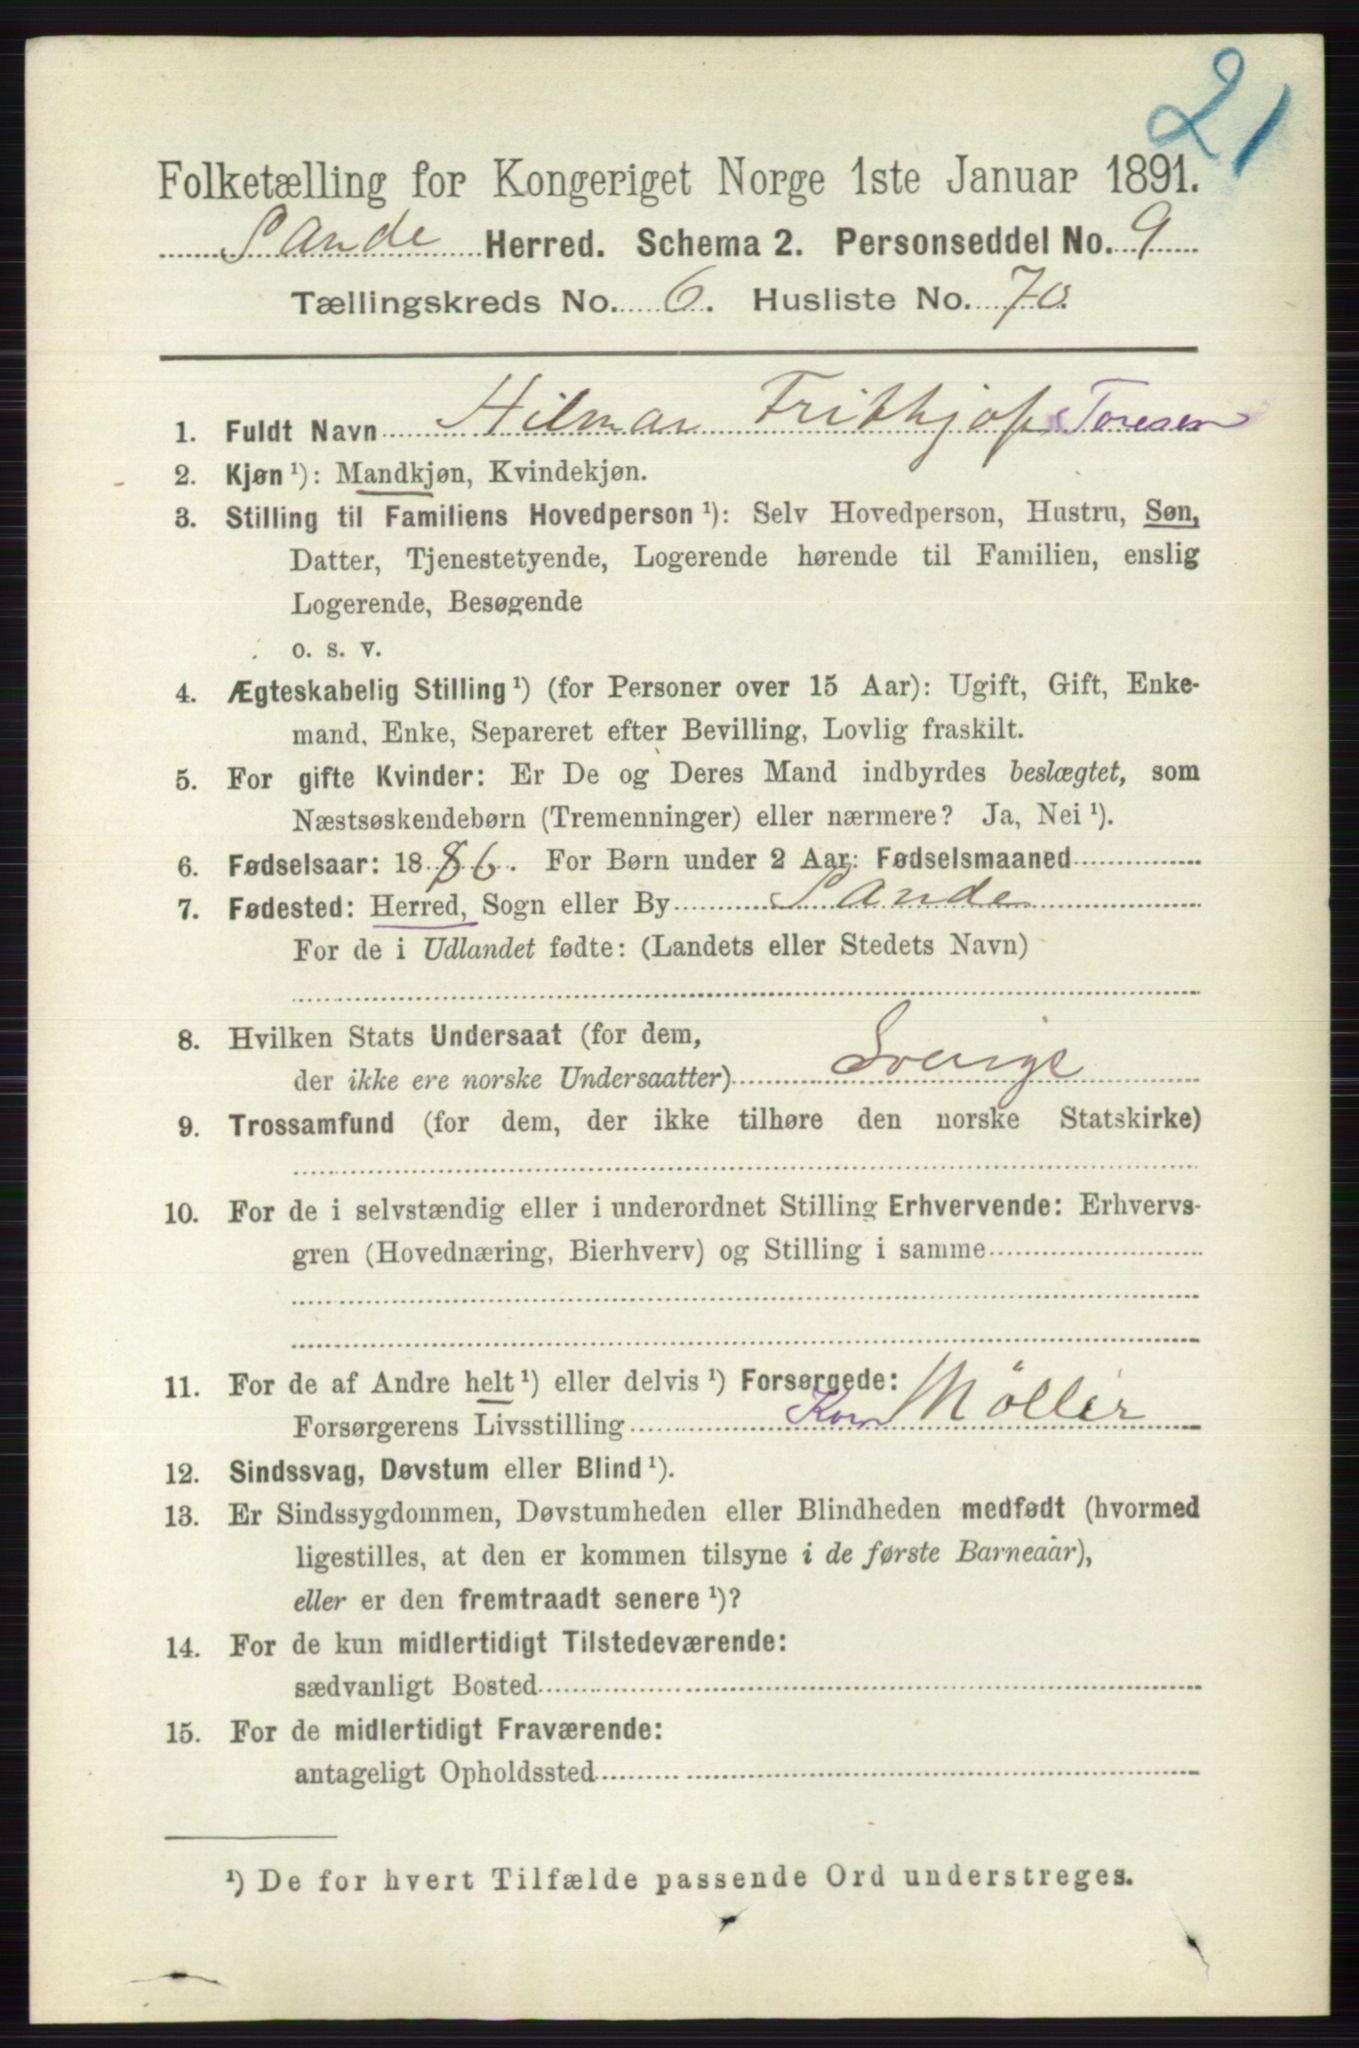 21
Folketælling for Kongeriget Norge 1ste Januar 1891.
Sande Herred. Schema 2. Personseddel No. 9
Tællingskreds No. 6. Husliste No. 70.
1. Fuldt Navn Hilmar Frithjof Toresen
2. Kjøn ¹): Mandkjøn, Kvindekjøn.
3. Stilling til Familiens Hovedperson ¹): Selv Hovedperson, Hustru, Søn,
Datter, Tjenestetyende, Logerende hørende til Familien, enslig
Logerende, Besøgende
o. s. v.
4. Ægteskabelig Stilling ¹) (for Personer over 15 Aar): Ugift, Gift, Enke-
mand, Enke, Separeret efter Bevilling, Lovlig fraskilt.
5. For gifte Kvinder: Er De og Deres Mand indbyrdes beslægtet, som
Næstsøskendebørn (Tremenninger) eller nærmere? Ja, Nei ¹).
6. Fødselsaar: 1886. For Børn under 2 Aar: Fødselsmaaned
7. Fødested: Herred, Sogn eller By Sande
For de i Udlandet fødte: (Landets eller Stedets Navn)
8. Hvilken Stats Undersaat (for dem,
der ikke ere norske Undersaatter) Sverige
9. Trossamfund (for dem, der ikke tilhøre den norske Statskirke)
10. For de i selvstændig eller i underordnet Stilling Erhvervende: Erhvervs-
gren (Hovednæring, Bierhverv) og Stilling i samme
11. For de af Andre helt ¹) eller delvis ¹) Forsørgede:
Forsørgerens Livsstilling Korn Möller
12. Sindssvag, Døvstum eller Blind ¹).
13. Er Sindssygdommen, Døvstumheden eller Blindheden medfødt (hvormed
ligestilles, at den er kommen tilsyne i de første Barneaar),
eller er den fremtraadt senere ¹)?
14. For de kun midlertidigt Tilstedeværende:
sædvanligt Bosted
15. For de midlertidigt Fraværende:
antageligt Opholdssted
¹) De for hvert Tilfælde passende Ord understreges.